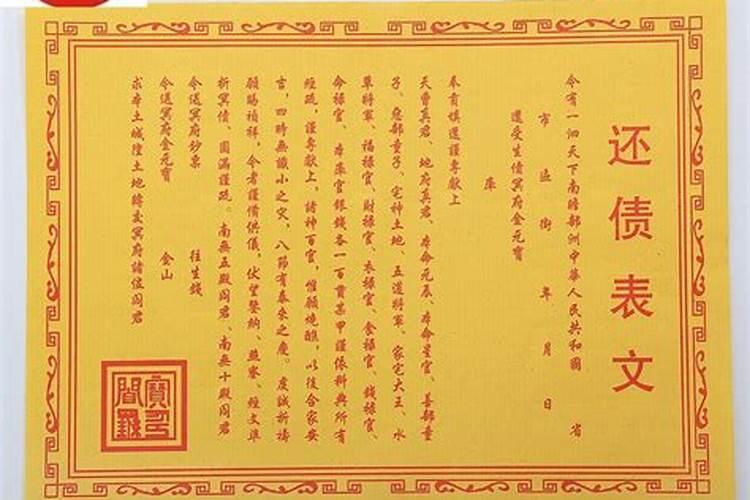 还债表文
今有一泗天下南瞻部洲中华人民共和国 省
市 區 街 年 月 日
還受生債冥府金元寶
庫
奉肯填還謹專献上
天曹真君、地府真君、本命元辰、本命星官、善部童
子、惡部童子、宅神土地、五道將軍、家宅大王、水
草將軍、福禄官、財禄官、衣禄官、食禄官、錢禄官、
命禄官、本庫官銀錢各一百贯某甲謹依科典所有
經疏，謹專献上，諸神百官，惟願燒醮，以後合家安
吉，四時無識小之灾，八節有泰來之慶。虔誠祈禱
願賜祯祥，令者謹備供儀，伏望鑒納、燕寥、經文準
折冥债、圆滿謹疏。南無五殿阎君、南無十殿阎君
今送冥府钞票 往生錢
今送冥府金元寶 金山
求本土城隍土地轉交冥府諸位阎君